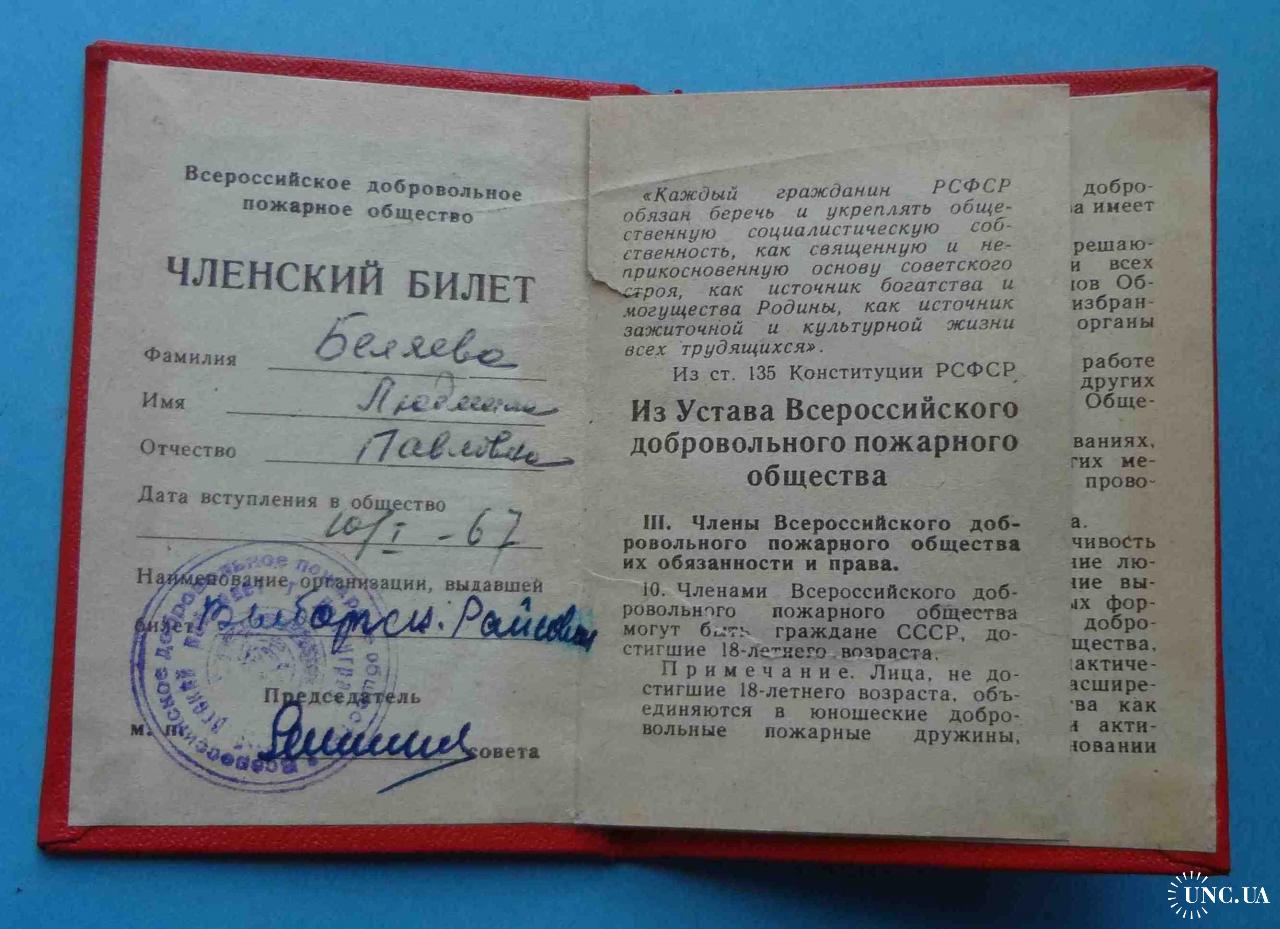 Всероссийское добровольное
пожарное общество
ЧЛЕНСКИЙ БИЛЕТ
Фамилия Беляева
Имя Людмила
Отчество Павловна
Дата вступления в общество
10/I - 67
Наименование организации, выдавшей
билет Выборгск. Райсовет
Председатель
м. п. совета
Всероссийское добровольное пожарное общество
«Каждый гражданин РСФСР
обязан беречь и укреплять обще-
ственную социалистическую соб-
ственность, как священную и не-
прикосновенную основу советского
строя, как источник богатства и
могущества Родины, как источник
зажиточной и культурной жизни
всех трудящихся».
Из ст. 135 Конституции РСФСР
Из Устава Всероссийского
добровольного пожарного
общества
III. Члены Всероссийского доб-
ровольного пожарного общества
их обязанности и права.
10. Членами Всероссийского доб-
ровольного пожарного общества
могут быть граждане СССР, до-
стигшие 18-летнего возраста.
Примечание. Лица, не до-
стигшие 18-летнего возраста, объ-
единяются в юношеские добро-
вольные пожарные дружины,
добро-
ва имеет
решаю-
и всех
ов Об-
избран-
органы
работе
других
Обще-
ваниях,
гих ме-
прово-
а.
чивость
ние лю-
ние вы-
ых фор-
добро-
щества,
актиче-
асшире-
ва как
и акти-
новании
UNC.UA